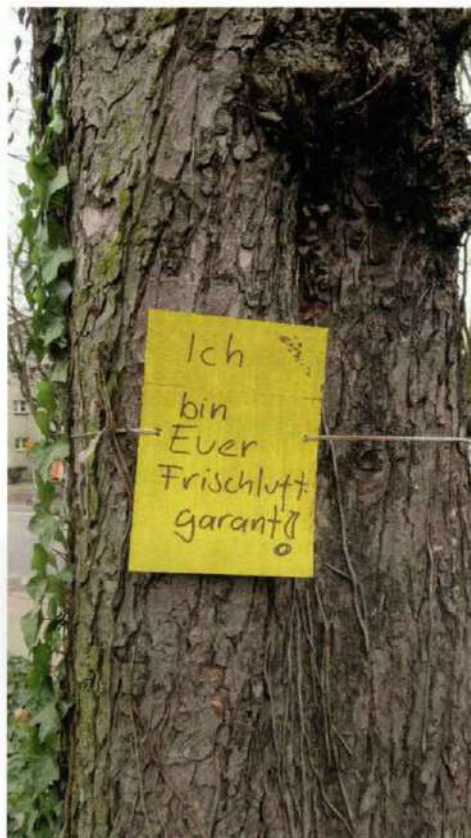 Ich
bin
Euer
Frischluft-
garant!